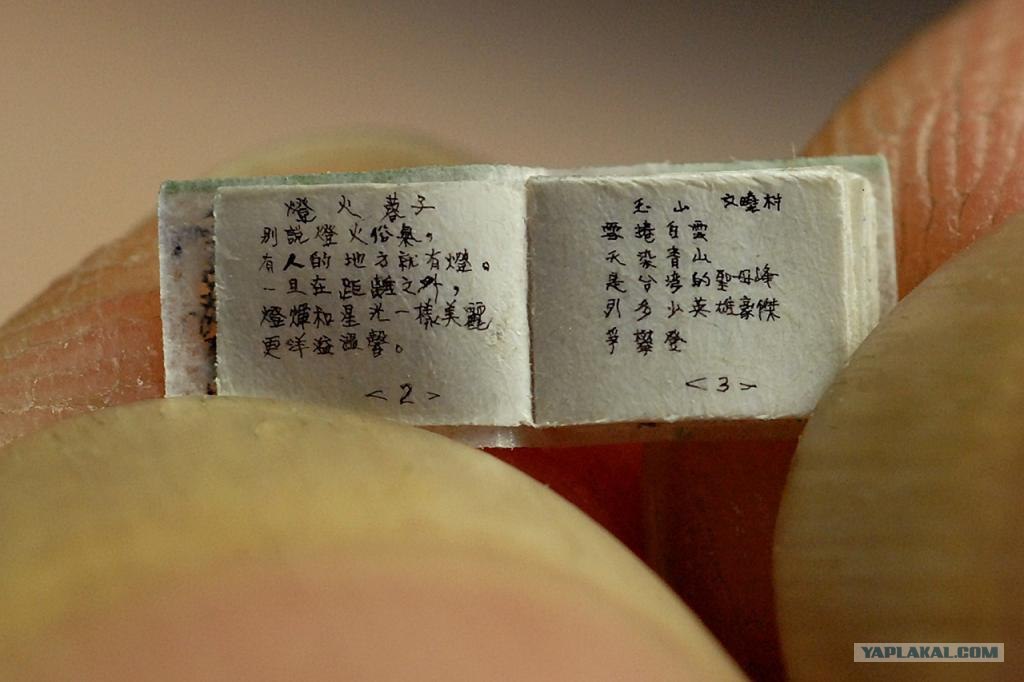 燈火 蓉子
別說燈火俗氣，
有人的地方就有燈。
一旦在距離之外，
燈輝和星光一樣美麗
更洋溢溫馨。
<2>
玉山 文曉村
雪捲白雲
天染青山
是台湾的聖母峰
引多少英雄豪傑
爭攀登
<3>
YAPLAKAL.COM